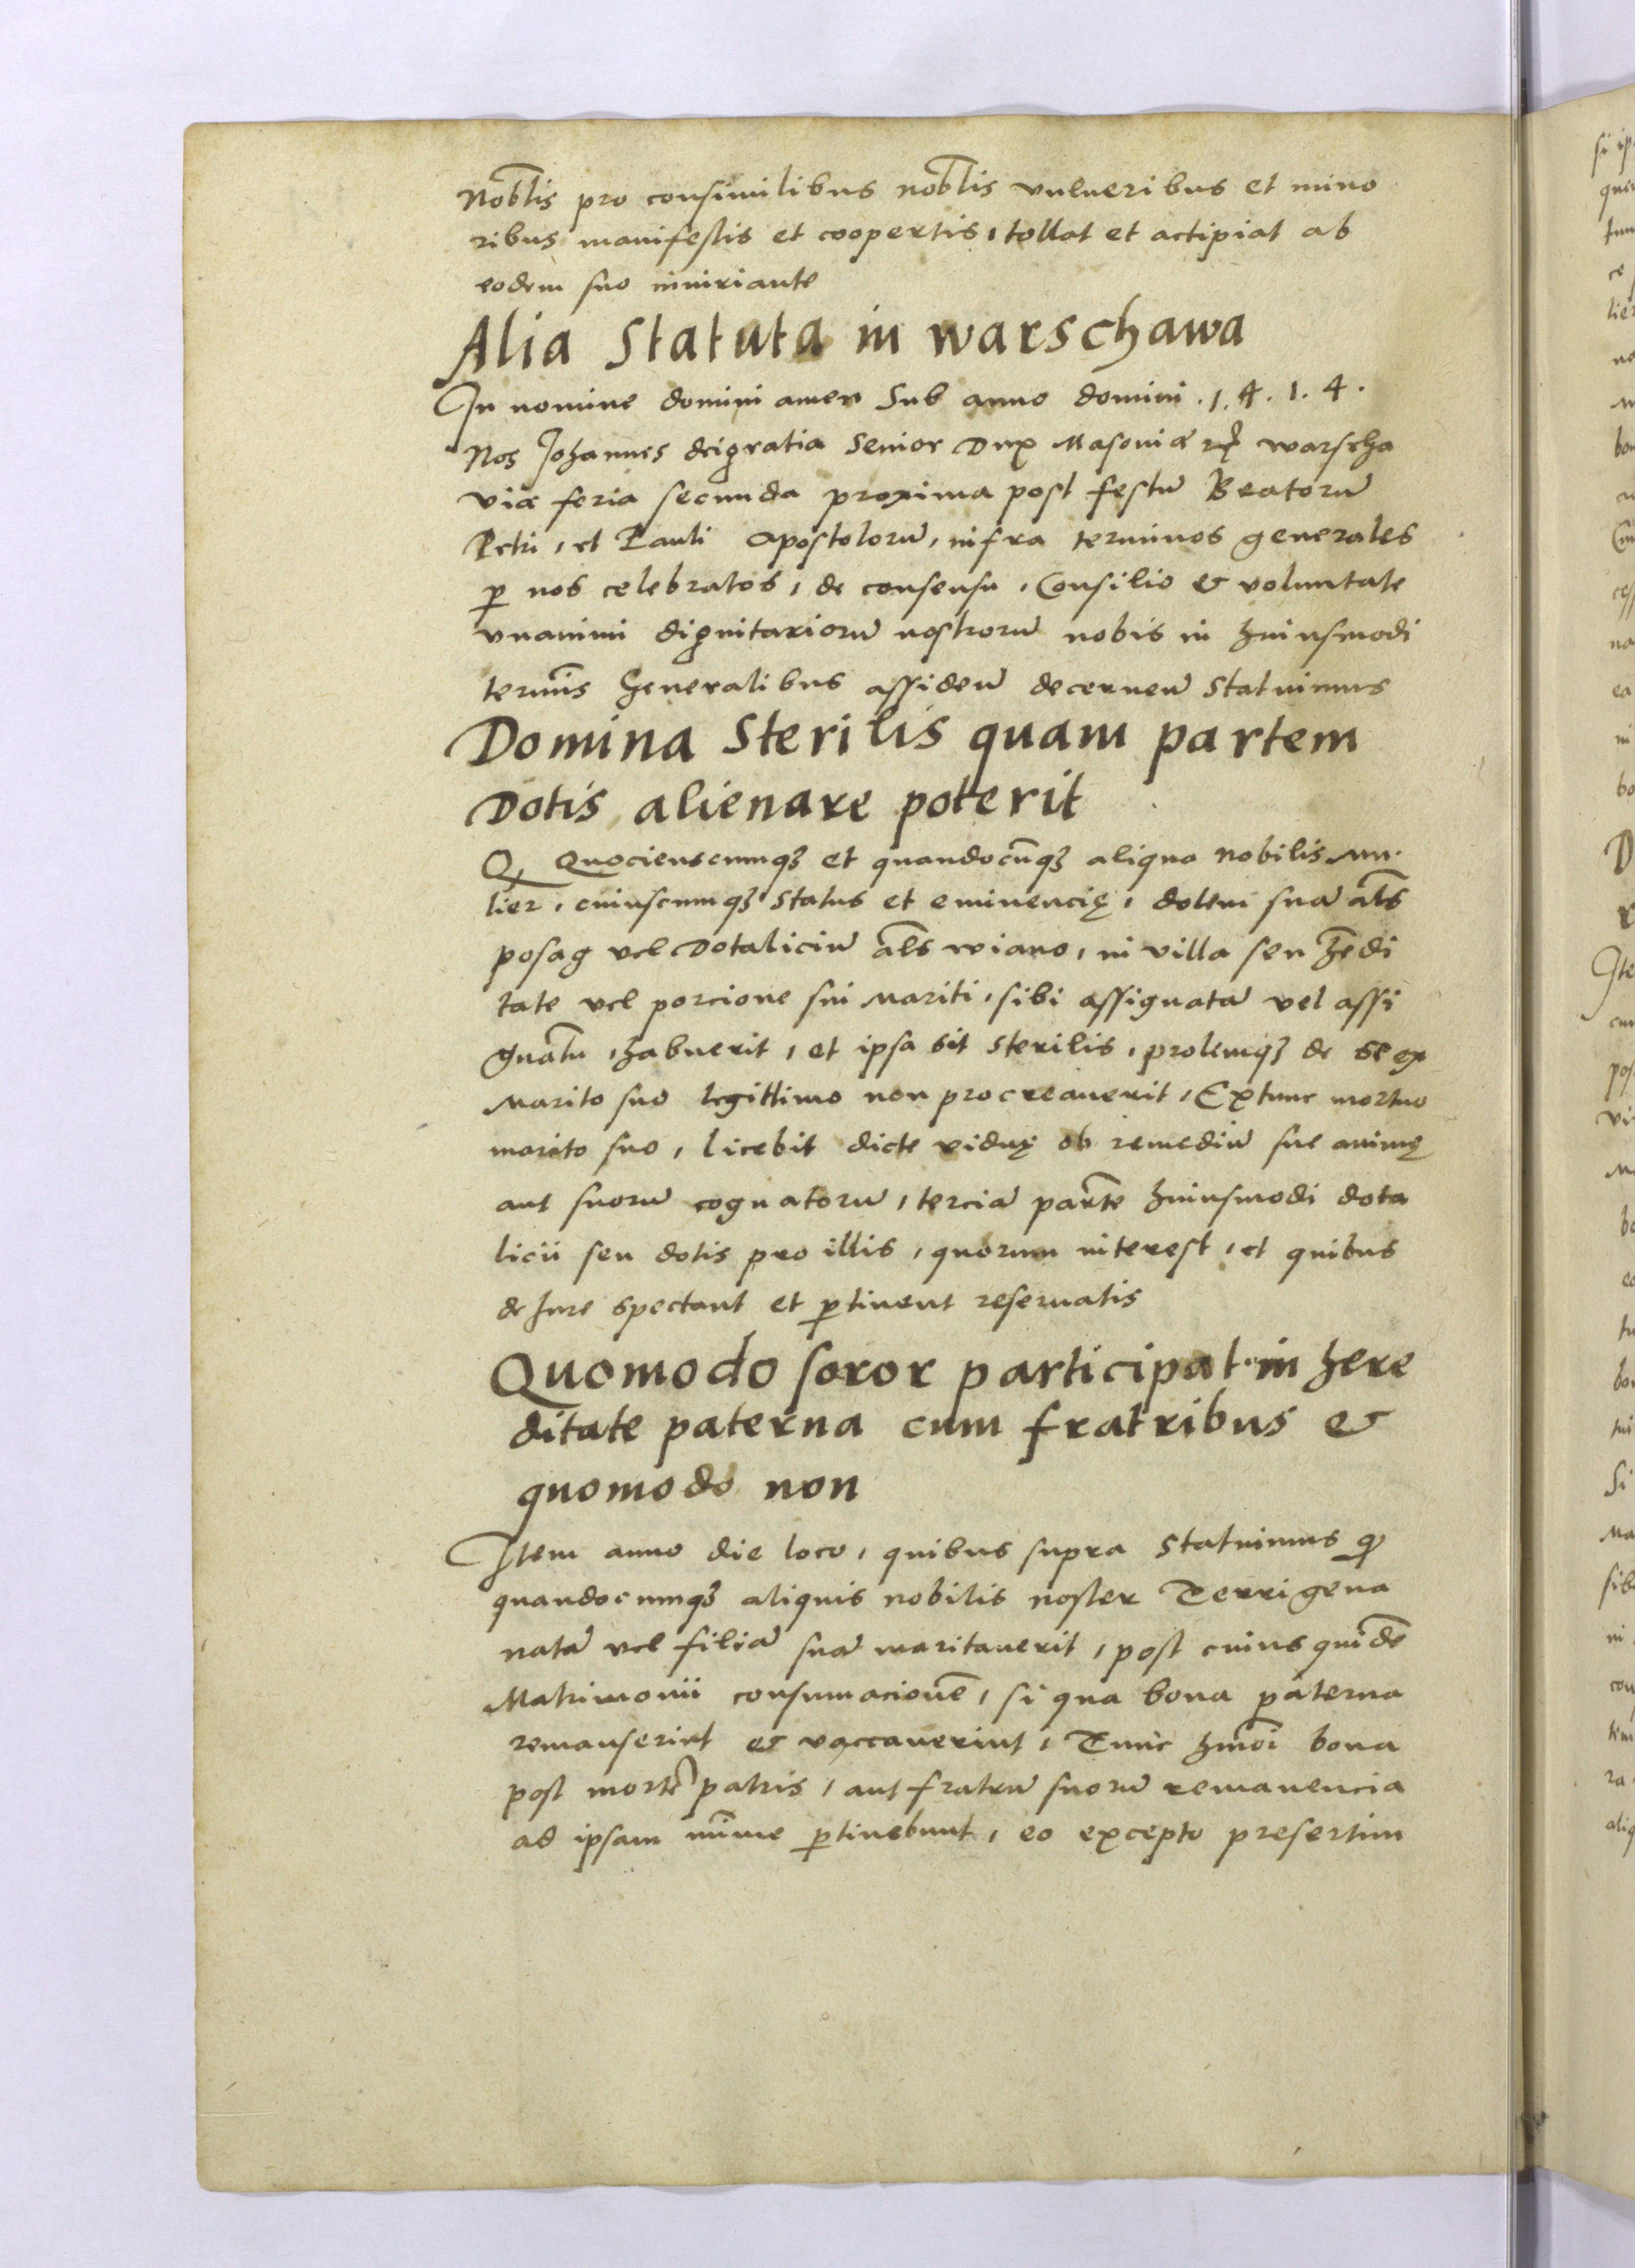 Nob̃lis pro consimilibus nob̃lis vulneribus et mino
ribus manifestis et coopertis, tollat et accipiat ab
eodem suo iniuriante
Alia Statuta in warschawa
In nomine domini amen Sub anno domini .1.4.1.4.
Nos Johannes deigratia Senior Dux Masoviæ rc̃ warscha
viæ feria secunda proxima post festũ Beatorũ
Petri, et Pauli Apostolorũ, infra terminos generales
ꝑ nos celebratos, de consensu, Consilio & voluntate
vnanimi dignitariorũ nostrorũ nobis in huiusmodi
terminĩs Generalibus assideñ decerneñ Statuimus
Domina Sterilis quam partem
Dotis alienare poterit
Q Quocienscumqꝫ et quandocũqꝫ aliqua Nobilis Mu
lier, cuiuscumqꝫ status et eminencię, dotem suã al̃s
posag vel Dotaliciũ al̃s wiano, in villa seu hẽdi
tate vel porcione sui Mariti, sibi assignatã vel assi
gnatũ, habuerit, et ipsa sit Sterilis, prolemqꝫ de se ex
Marito suo legittimo non procreauerit, Extunc mortuo
marito suo, licebit dicte viduę ob remediũ sue animę
aut suorũ cognatorũ, terciã partẽ huiusmodi dota
licii seu dotis pro illis, quorum interest, et quibus
de Jure spectant et ꝑtinent reseruatis
Quomodo soror participat in here
ditate paterna cum fratribus &
quomodo non
Item anno die loco, quibus supra Statuimus ꝙ
quandocumqꝫ aliquis nobilis noster Terrigena
natã vel filiã suã maritauerit, post cuius quidẽ
Matrimonii consumacionẽ, si qua bona paterna
remanserint & vaccauerint, Tunc hmõi bona
post mortẽ patris, aut fratrũ suorũ remanencia
ad ipsam mĩnime ꝑtinebunt, eo excepto presertim